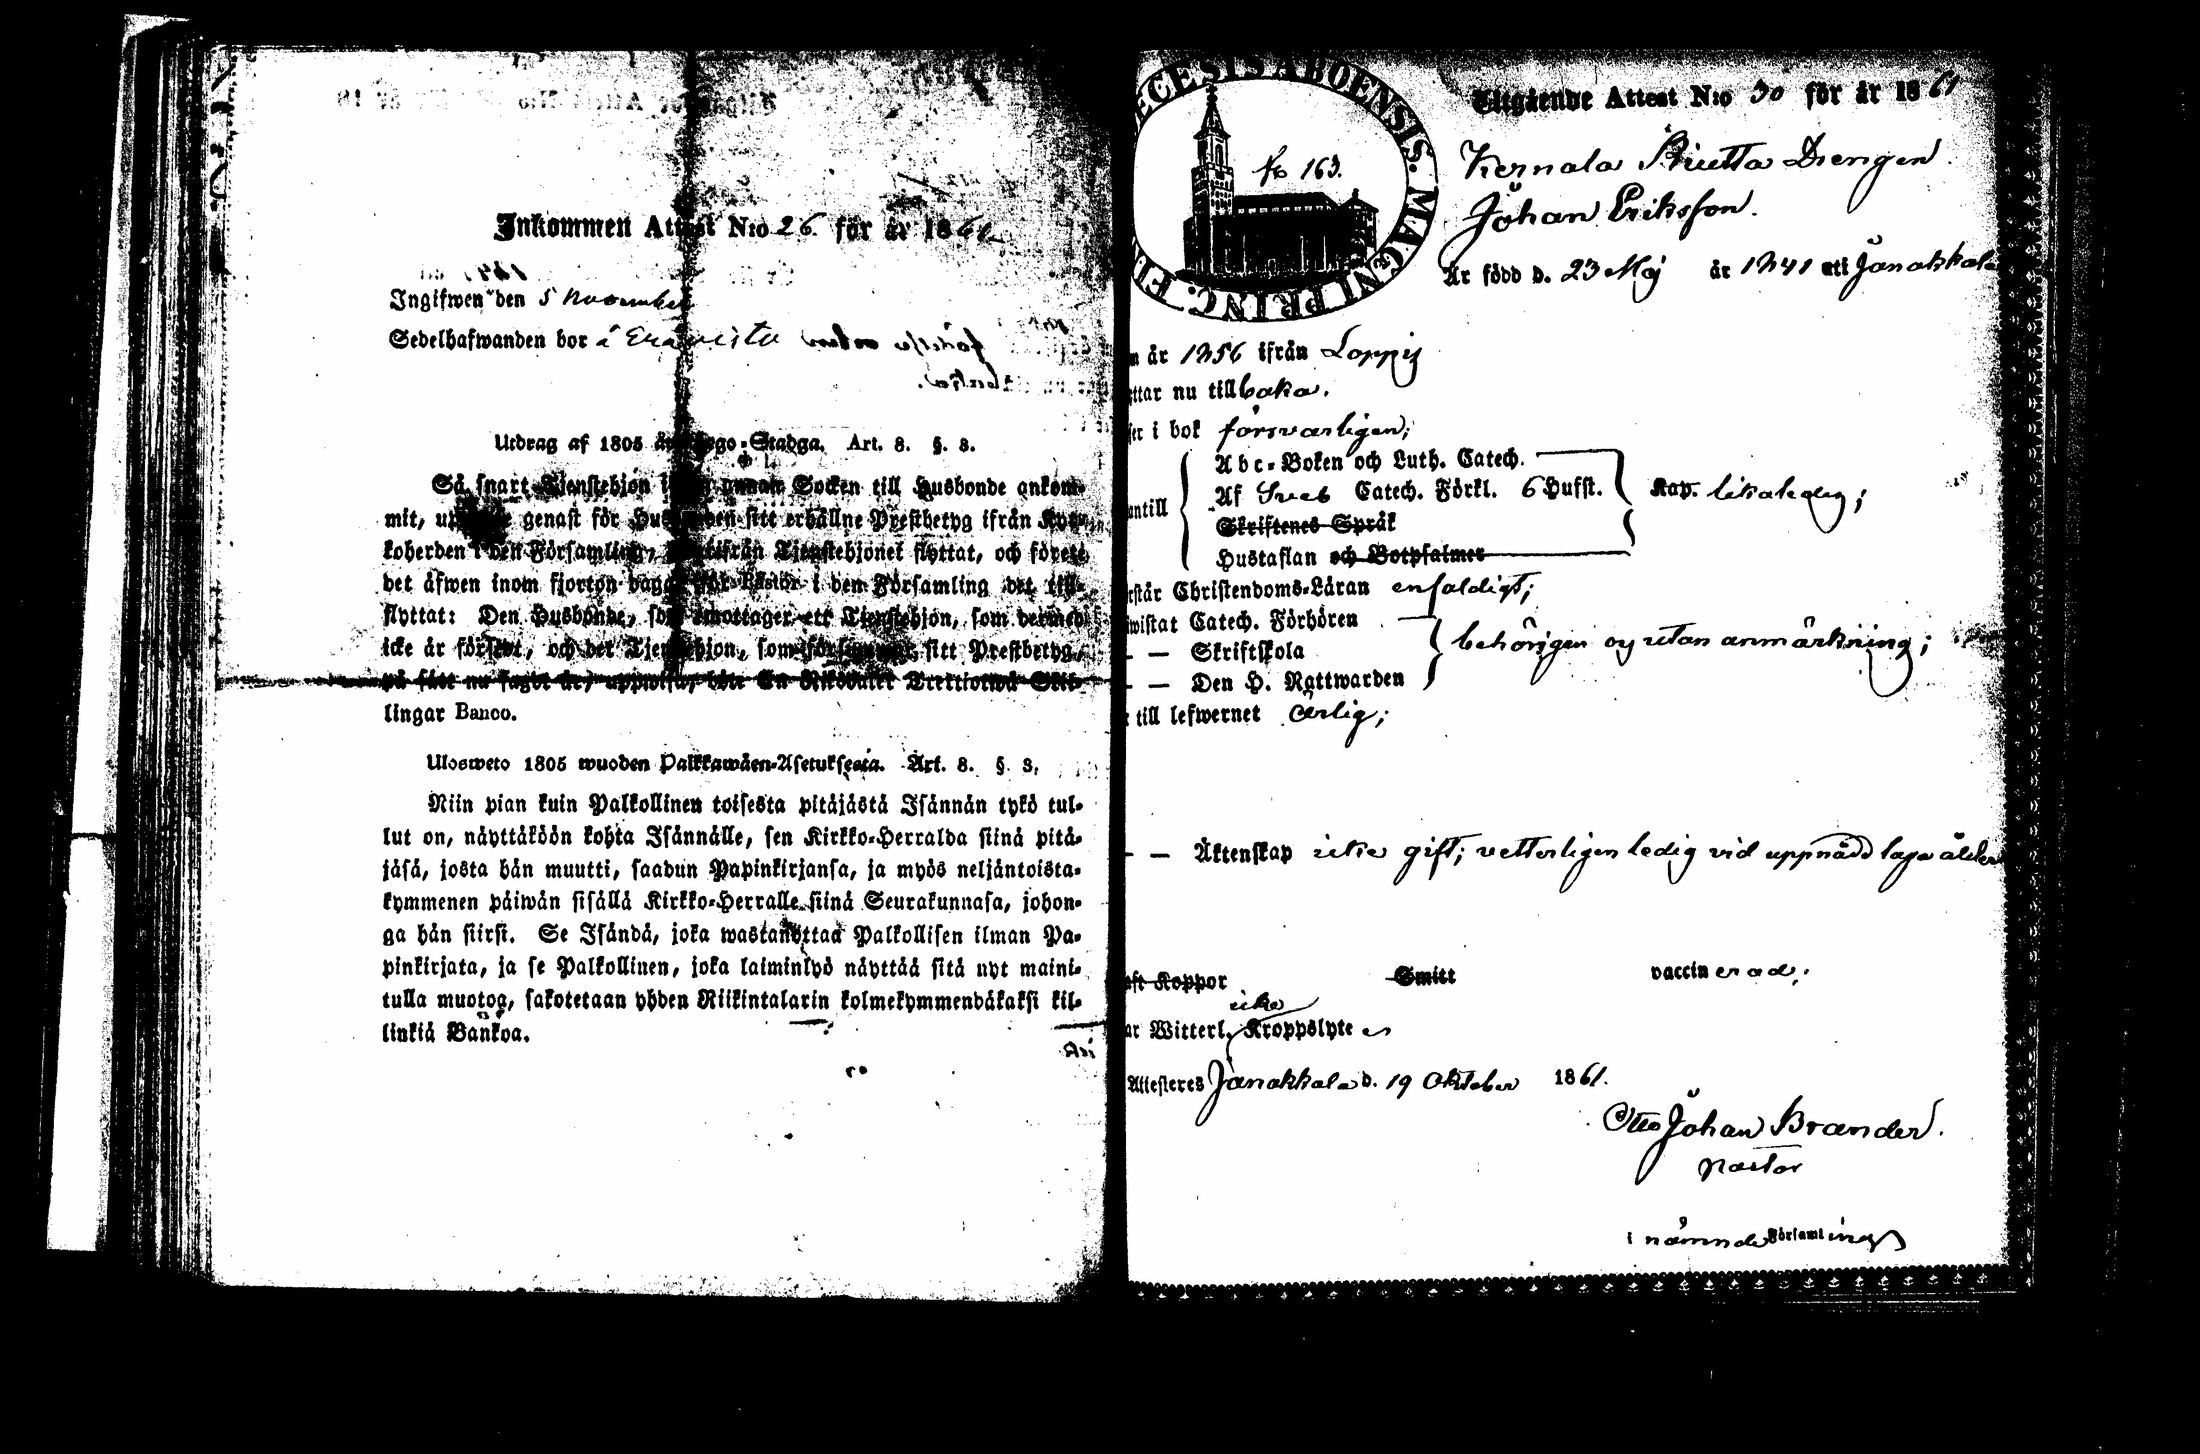 Inkommen Attest N:o 26 för år 1861
Ingifwen den 5 November
Sedelhafwanden bor å
Utdrag af 1805 års Lego-Stadga. Art. 8. §. 3.
Så snart Tjenstehjon ifrån annan Socken till Husbonde ankom-
mit, genast för Husbonden sitt erhållne Prestbetyg ifrån Kyr-
koherden i den Församling, hwarifrån Tjenstehjonet flyttat, och förete
det äfwen inom fjorton dagar för Pastor i den Församling det till-
flyttat: Den Husbonde, som emottager ett Tjenstehjon, som dermed
icke är försedt, och det Tjenstehjon, som försummar sitt Prestbetyg,
på sätt nu sagdt är, uppwisa, böte En Riksdaler Trettiotwå Skil-
lingar Banco.
Ulosweto 1805 wuoden Palkkawäen-Asetuksesta. Art. 8. §. 3.
Niin pian kuin Palkollinen toisesta pitäjästä Isännän tykö tul-
lut on, näyttäköön kohta Isännälle, sen Kirkko-Herralda siinä pitä-
jäsä, josta hän muutti, saadun Papinkirjansa, ja myös neljäntoista-
kymmenen päiwän sisällä Kirkko-Herralle siinä Seurakunnasa, johon-
ga hän siirsi. Se Isändä, joka wastanottaa Palkollisen ilman Pa-
pinkirjata, ja se Palkollinen, joka laiminlyö näyttää sitä nyt maini-
tulla muotoa, sakotetaan yhden Riikintalarin kolmekymmendäkaksi kil-
linkiä Bankoa.
ECESIS ABOENSIS. MAGNI PRINC. F
No 163.
Utgående Attest N:o 30 för år 1861
Kernala Drengen
Johan Eriksson.
Är född d. 23 Maj år 1841 uti Janakkala
år 1856 ifrån Loppis
ttar nu tillbaka.
ser i bok försvarligen;
antill
Abc-Boken och Luth. Catech.
Af Sveb Catech. Förkl. 6 Hufst. Kap. likaledes;
Skriftenes Språk
Hustaflan och Botpsalmer
rstår Christendoms-Läran enfaldigt;
wistat Catech. Förhören
— — Skriftskola behörigen och utan anmärkning;
— — Den H. Nattwarden
till lefwernet ärlig;
— — Äktenskap icke gift; vetterligen ledig vid uppnådd laga ålder
aft Koppor Smitt vaccinerad;
icke
ar Witterl. Kroppslyte
Attesteres Janakkala d. 19 Oktober 1861.
Otto Johan Brander.
pastor
i nämnde Församling